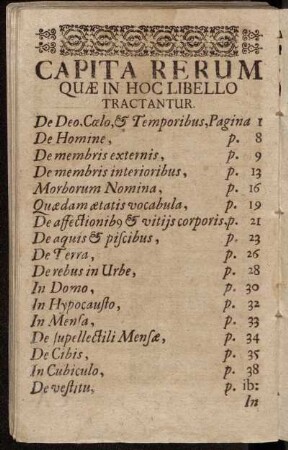 CAPITA RERUM
QUÆ IN HOC LIBELLO
TRACTANTUR.
De Deo. Cœlo, & Temporibus, Pagina 1
De Homine, p. 8
De membris externis, p. 9
De membris interioribus, p. 13
Morborum Nomina, p. 16
Quædam ætatis vocabula, p. 19
De affectionibꝰ & vitijs corporis, p. 21
De aquis & piſcibus, p. 23
De Terra, p. 26
De rebus in Urbe, p. 28
In Domo, p. 30
In Hypocauſto, p. 32
In Menſa, p. 33
De ſupellectili Menſæ, p. 34
De Cibis, p. 35
In Cubiculo, p. 38
De veſtitu, p. ib:
In